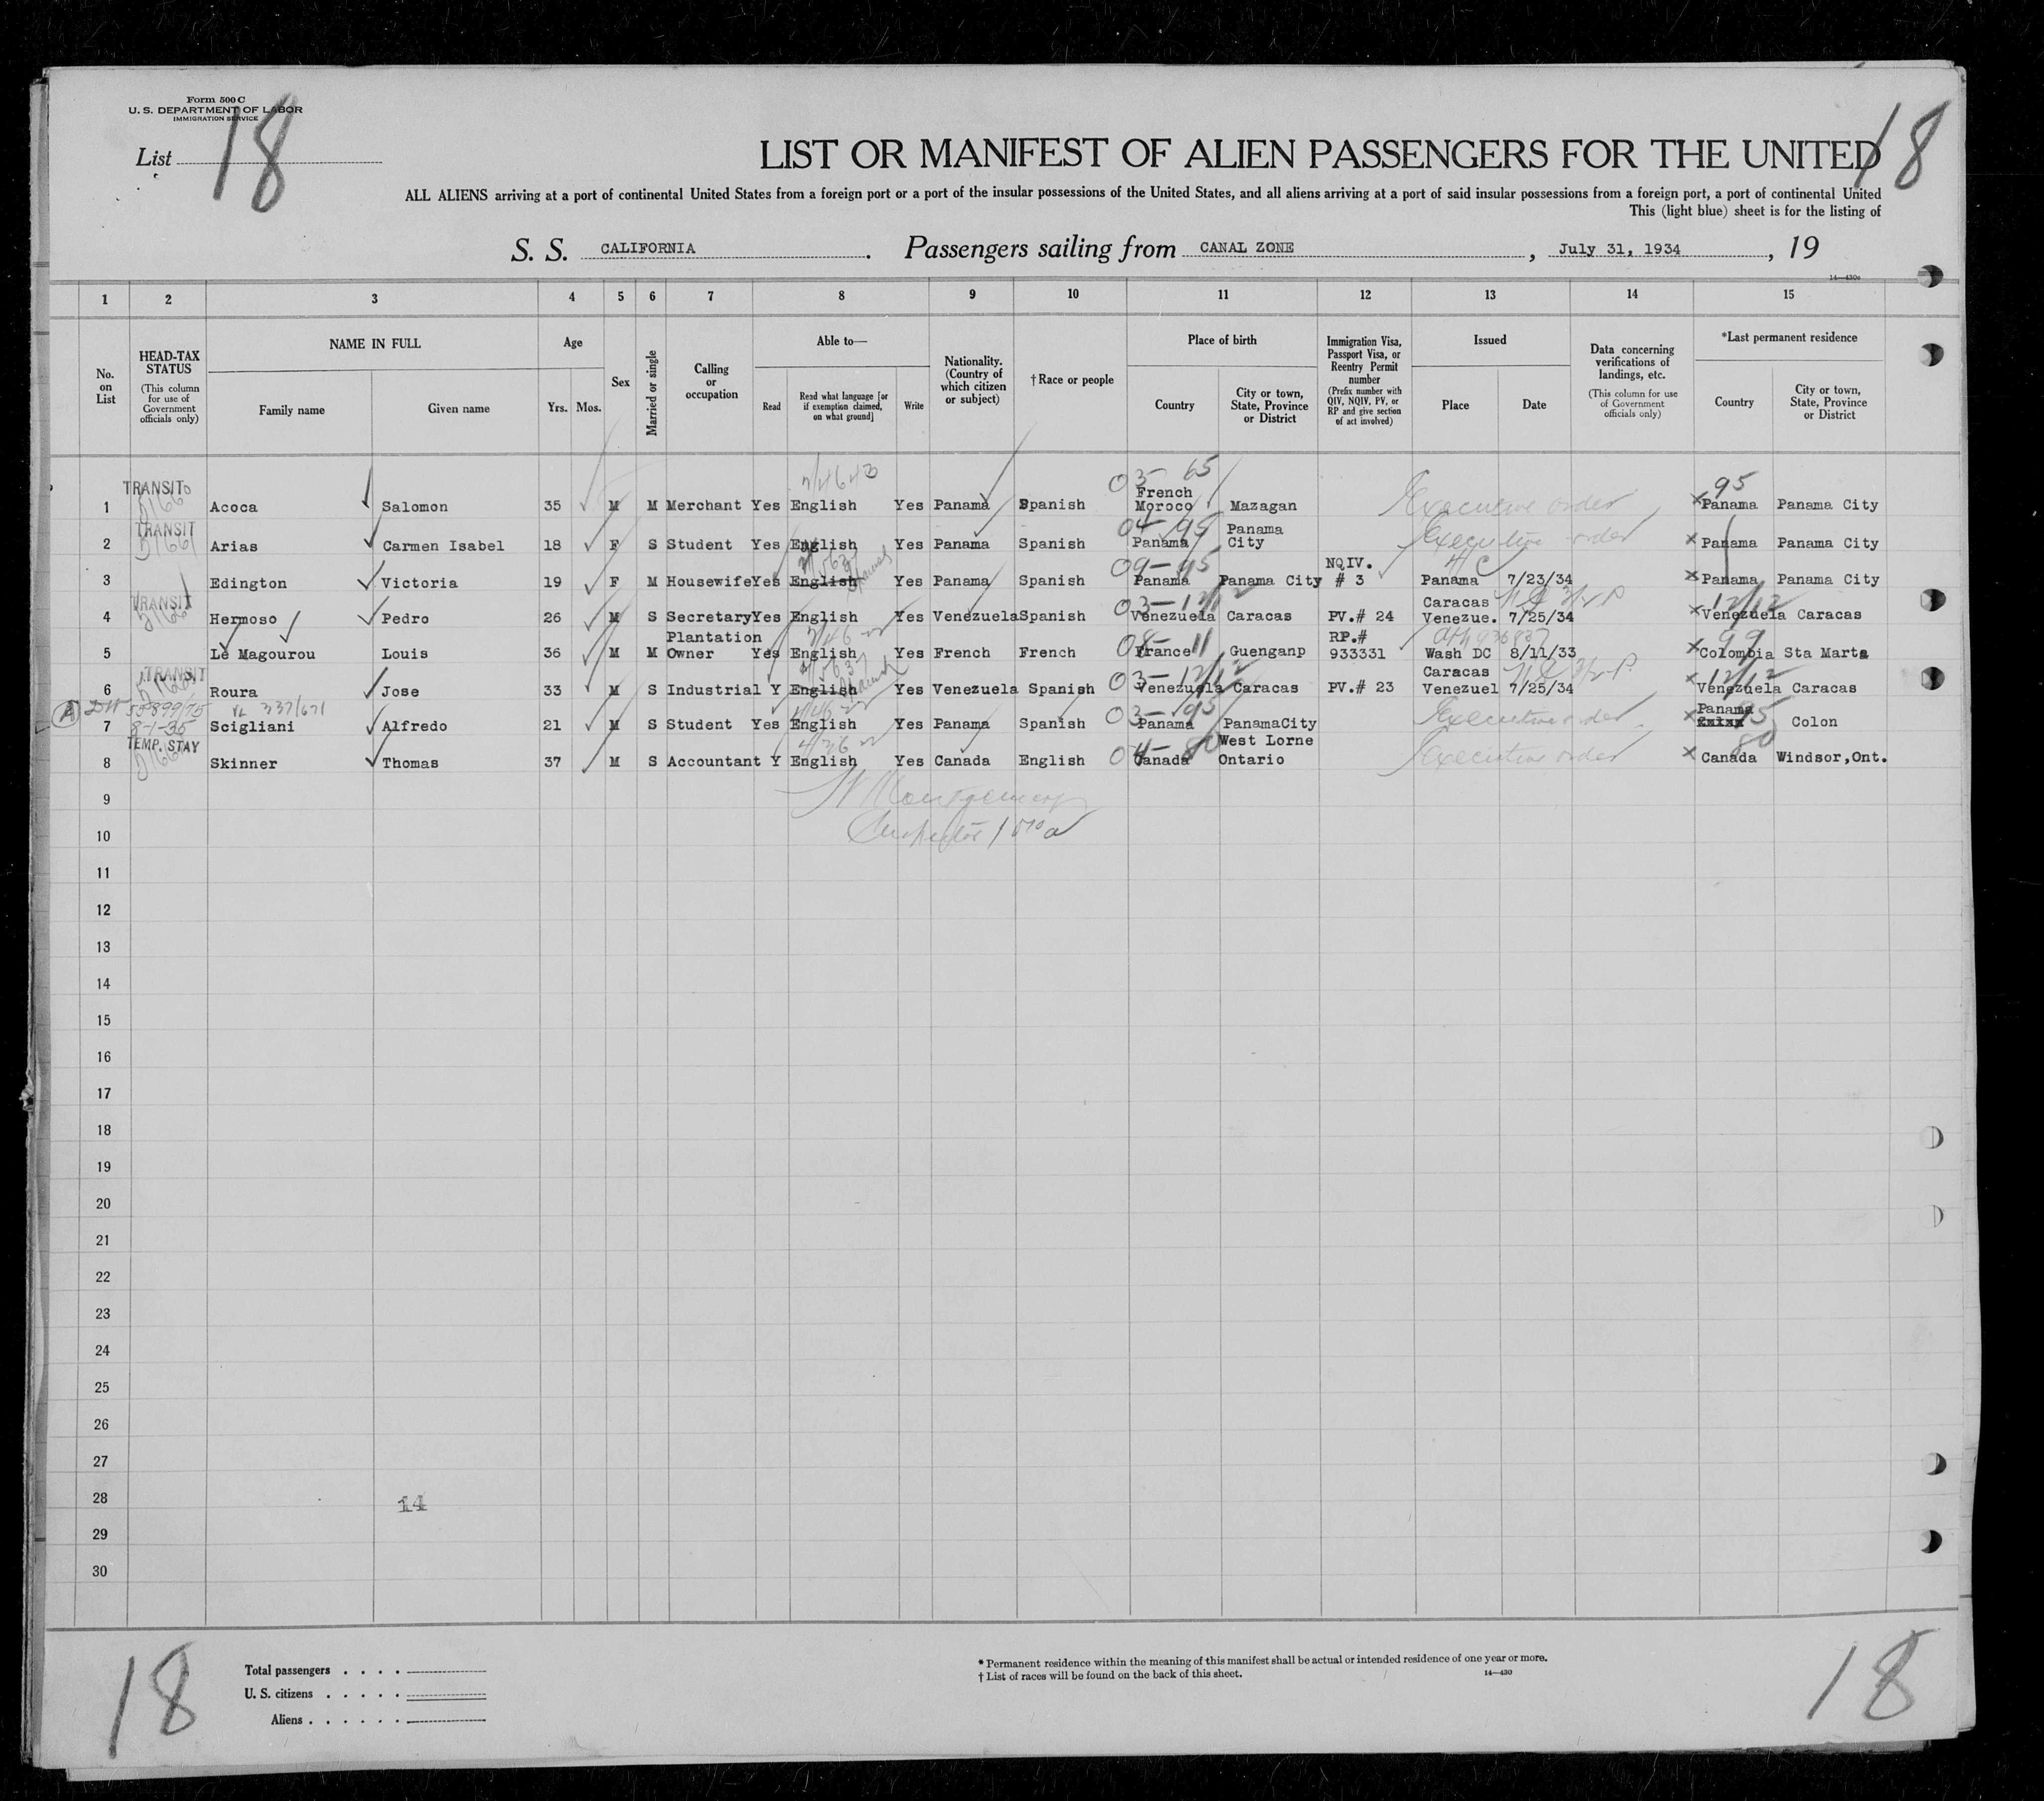 Form 500 C
U. S. DEPARTMENT OF LABOR
IMMIGRATION SERVICE
List 18
18
LIST OR MANIFEST OF ALIEN PASSENGERS FOR THE UNITED
ALL ALIENS arriving at a port of continental United States from a foreign port or a port of the insular possessions of the United States, and all aliens arriving at a port of said insular possessions from a foreign port, a port of continental United
This (light blue) sheet is for the listing of
S. S. CALIFORNIA. Passengers sailing from CANAL ZONE, July 31, 1934, 19
14—430a
1 2 3 4 5 6 7 8 9 10 11 12 13 14 15
No. on List
HEAD-TAX STATUS (This column for use of Government officials only)
NAME IN FULL
Family name Given name
Age
Yrs. Mos.
Sex
Married or single
Calling or occupation
Able to—
Read
Read what language [or if exemption claimed, on what ground]
Write
Nationality. (Country of which citizen or subject)
†Race or people
Place of birth
Country
City or town, State, Province or District
Immigration Visa, Passport Visa, or Reentry Permit number (Prefix number with QIV, NQIV, PV, or RP and give section of act involved)
Issued
Place Date
Data concerning verifications of landings, etc. (This column for use of Government officials only)
*Last permanent residence
Country
City or town, State, Province or District
TRANSIT 03 65 95
1 Acoca Salomon 35 M M Merchant Yes English Yes Panama Spanish French Moroco Mazagan Executive order Panama Panama City
TRANSIT 04—95
2 Arias Carmen Isabel 18 F S Student Yes English Yes Panama Spanish Panama Panama City Executive order Panama Panama City
3 Edington Victoria 19 F M Housewife Yes English Spanish Yes Panama Spanish Panama Panama City NQIV. # 3 Panama 7/23/34 Panama Panama City
TRANSIT 03—12/12 12/12
4 Hermoso Pedro 26 M S Secretary Yes English Yes Venezuela Spanish Venezuela Caracas PV.# 24 Caracas Venezue. 7/25/34 Venezuela Caracas
08—11 99
5 Le Magourou Louis 36 M M Plantation Owner Yes English Yes French French France Guenganp RP.# 933331 Wash DC 8/11/33 Colombia Sta Marta
TRANSIT 03—12/12 12/12
6 Roura Jose 33 M S Industrial Y English Spanish Yes Venezuela Spanish Venezuela Caracas PV.# 23 Caracas Venezuel 7/25/34 Venezuela Caracas
03—95 95
7 Scigliani Alfredo 21 M S Student Yes English Yes Panama Spanish Panama PanamaCity Executive order Panama Colon
TEMP. STAY 04—80 80
8 Skinner Thomas 37 M S Accountant Y English Yes Canada English Canada West Lorne Ontario Executive order Canada Windsor,Ont.
9 Montgomery
10 Inspector
11
12
13
14
15
16
17
18
19
20
21
22
23
24
25
26
27
28 14
29
30
18
Total passengers
U. S. citizens
Aliens
* Permanent residence within the meaning of this manifest shall be actual or intended residence of one year or more.
† List of races will be found on the back of this sheet.
14—430
18